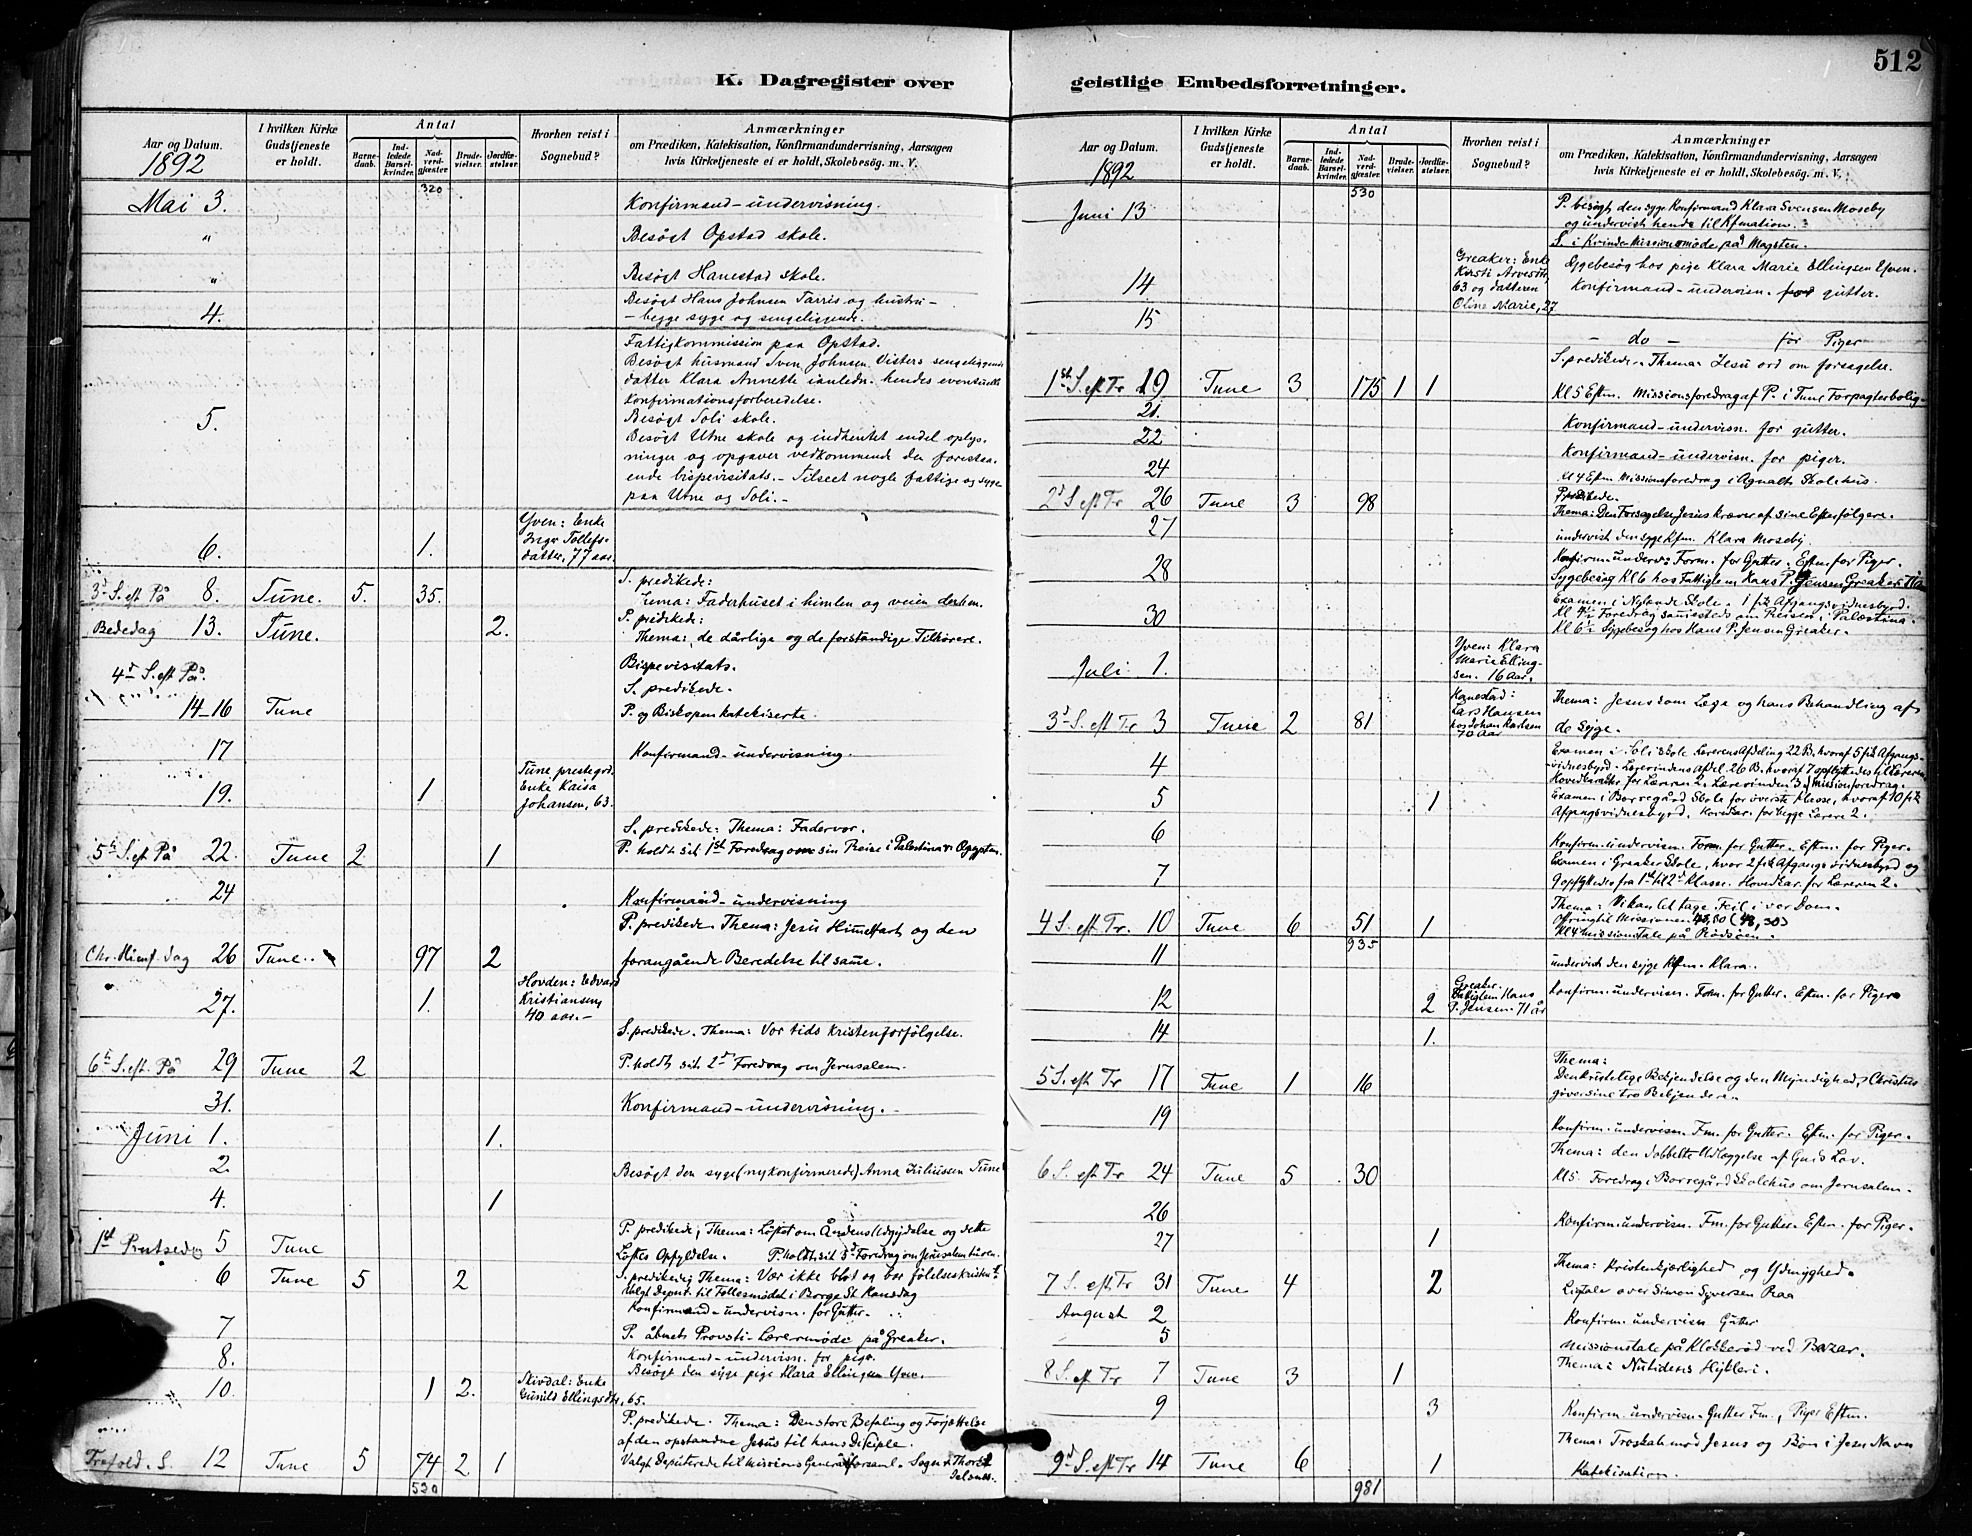 512
K. Dagregister over
geistlige Embedsforretninger.
Aar og Datum.
1892
I hvilken Kirke Gudstjeneste er holdt.
Antal
Barnedaab.
Indledede Barselkvinder.
Nadverdgjæster.
Brudevielser.
Jordfæstelser.
Hvorhen reist i Sognebud?
Anmærkninger
om Prædiken, Katekisation, Konfirmandundervisning, Aarsagen
hvis Kirketjeneste ei er holdt, Skolebesøg. m. V.
320
Mai 3. Konfirmand-undervisning.
" Besøgt Opstad skole.
" Besøgt Hanestad skole.
4. Besøgt Hans Johnsen Tarris og hustru -
- begge syge og sengeliggende.
Fattigkommission paa Opstad.
Besøgt husmand Sven Johnsen Visters sengeliggende
datter Klara Annette ianledn. hendes eventuelle
Konfirmationsforberedelse.
5. Besøgt Soli skole.
Besøgt Utne skole og indhentet endel oplys-
ninger og opgaver vedkommende den forestaa-
ende bispevisitats. - Tilseet nogle fattige og syge
paa Utne og Soli. -
6. 1. Yven: Enke
Inger Tollefs-
datter, 77 aar.
3d S. eft På 8. Tune. 5. 35. S. predikede:
Tema: Faderhuset i himlen og veien derhen.
Bededag 13. Tune. 2. P. predikede:
Thema: de dårlige og de forstandige Tilhørere.
4d S. eft På. Bispevisitats.
S. predikede.
14-16 Tune P. og Biskopen katekiserte.
17 Konfirmand-undervisning.
19. 1 Tune prestegrd.
Enke Kaisa
Johansen, 63.
S. predikede: Thema: Fadervor.
5te S. eft På 22. Tune 2 1 P. holdt sit 1ste Foredrag om sin Reise i Palestina & Ægypten.
24 Konfirmand-undervisning
P. predikede Thema: Jesu Himelfart og den
Chr. Himf. dag 26 Tune.. 97 2 forangående Beredelse til same.
27. 1. Hovden: Edvard
Kristiansen,
40 aar. -
S. predikede. Thema: Vor tids kristenforfølgelse.
6te S. eft. På 29 Tune 2 P. holdt sit 2det Foredrag om Jerusalem.
31. Konfirmand-undervisning. -
Juni 1. 1.
2. Besøgt den syge (nykonfirmerede) Anna Juliussen Tune
4. 1
P. predikede, Thema: Løftet om Åndens Udgydelse og dette
1st Pintsedag 5 Tune Løftes Opfyldelse. P. holdt sit 3d Foredrag om Jerusalemturen.
6 Tune 5 2 S. predikede Thema: Vær ikke blot og bar følelseskristen
Valgt Deput. til Fællesmødet i Borge St. Hansdag
Konfirmand-undervisn. for Gutter.
7 P. åbnet Provsti-Lærermøde på Greaker.
8. Konfirmand-undervisn. for piger.
Besøgt den syge pige Klara Ellingsen Yven.
10. 1 2. Skivdal: Enke
Gunild Ellingsdtr, 65.
P. predikede. Thema: Den store Befaling og Forjættelse
af den opstandne Jesus til hans Disciple.
Trefold. S. 12 Tune 5 74 2 1 Valgt Deputerede til missions Generalforsaml.
530
Aar og Datum.
1892
I hvilken Kirke Gudstjeneste er holdt.
Antal
Barnedaab.
Indledede Barselkvinder.
Nadverdgjæster.
Brudevielser.
Jordfæstelser.
Hvorhen reist i Sognebud?
Anmærkninger
om Prædiken, Katekisation, Konfirmandundervisning, Aarsagen
hvis Kirketjeneste ei er holdt, Skolebesøg. m. V.
530
Juni 13 P. besøgt den syge Konfirmand Klara Svensen Moseby
og undervist hende til Kfmation.
S. i Kvinde-Missionsmøde på Magsten.
14 Greaker: Enke
Kirsti Arvesdtr,
63 og datteren
Oline Marie, 27
Sygebesøg hos pige Klara Marie Ellingsen Yven.
Konfirmand-undervisn. for gutter.
15 - do - for Piger
S. predikede. Thema: Jesu ord om forsagelse.
1ste S. eft Tr. 19 Tune 3 175 1 1 Kl 5 Eftm. Missionsforedrag af P. i Tune Forpagterbolig
21.
22 Konfirmand-undervisn. for gutter.
Konfirmand-undervisn. for piger.
24 Kl 4 Eftm Missionsforedrag i Agnalt Skolehus.
2d S eft Tr 26 Tune 3 98 Predikede.
Thema: Den Forsagelse Jesus kræver af sine Efterfølgere.
27 undervist den syge Kfm. Klara Moseby.
28 Konfirm. underv: Form. for Gutter. Eftm. for Piger.
Sygebesøg Kl 6 hos Fattiglem Hans P. Jensen Greaker, 71 år
Examen i Nylande Skole. 1 fik Afgangsvidnesbyrd.
30 Kl 4½ Foredrag sammesteds om Reisen i Palæstina.
Kl 6½ Sygebesøg hos Hans P. Jensen Greaker.
Juli 1. Yven: Klara
Marie Elling-
sen. 16 aar.
3d S. eft Tr 3 Tune 2 81 Hanestad:
Lars Hansen
hos Johan Karlsen
70 aar
Thema: Jesus som Læge og hans Behandling af
de Syge.
4 Examen i Soli skole. Lærerens Afdeling 22 B. hvoraf 5 fik Afgangs-
vidnesbyrd. Lærerindens Afdel. 26 B. hvoraf 7 opflyttedes til Læreren.
Hovedkarakter for Læreren 2, Lærerinden 3. Missionsforedrag.
5 1 Examen i Borregård Skole for øverste Klasse, hvoraf 10 fik
Afgangsvidnesbyrd. Hovedkar. for begge Lærere 2.
6 Konfirm. undervisn. Form. for Gutter. Eftm. for Piger.
7 Examen i Greaker Skole, hvor 2 fik Afgangsvidnesbyrd og
9 opflyttedes fra 1ste til 2d Klasse. Hovedkar. for Læreren 2.
4 S. eft Tr. 10 Tune 6 51 1 Thema: Vi kan let tage Feil i vor Dom.
Ofring til Missionen
Kl 4 missionstale på Rødsøen.
935
11 undervist den syge Kfm. Klara.
12 2 Greaker.
Fattiglem Hans
P. Jensen. 71 år
Konfirm. undervisn. Form. for Gutter. Eftm. for Piger
14 1.
5 S. eft Tr 17 Tune 1 16 Thema:
Den kristelige Bekjendelse og den Myndighed, Christus
giver sine tro Bekjendere.
19 Konfirm. undervisn. Fm. for Gutter. Eftm. for Piger.
6 S. eft Tr 24 Tune 5 30 Thema: den dobbelte Udlæggelse af Guds Lov.
Kl 5. Foredrag i Borregård Skolehus om Jerusalem.
26 Konfirm. undervisn. Fm. for Gutter. Eftm. for Piger.
27 1
7 S. eft Tr 31 Tune 4 2 Thema: Kristenkjærlighed og Ydmyghed.
Ligtale over Simon Syversen Raa
August 2 Konfirm. undervisn Gutter
5 Missionstale på Klokkerød ved Bazar.
8 S. eft Tr 7 Tune 3 1 Thema: Nutidens Hykleri.
9 3 Konfirm. undervisn. Gutter Fm., Piger Eftm.
9d S. eft Tr 14 Tune 6 1 Thema: Troskab mod Jesus og Bøn i Jesu Navn
Katekisation.
981